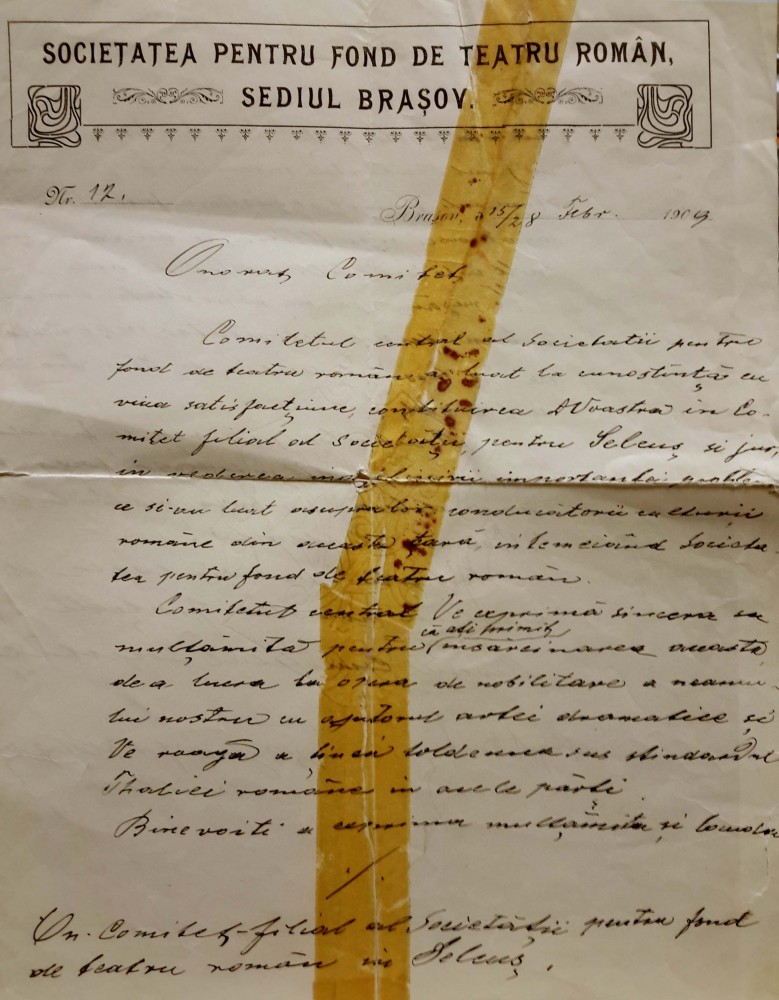 SOCIETATEA PENTRU FOND DE TEATRU ROMÂN,
SEDIUL BRAȘOV.
Nr. 12.
Brașov, 15/28 Febr. 1909
Onorat Comitet,
Comitetul central al societatii pentru
fond de teatru român a luat la cunostință cu
viua satisfacțiune, constituirea DVoastră in Co-
mitet filial al Societății, pentru Selcuș si jur,
in vederea importantei problem
ce si-au luat asupra lor conducătorii culturii
române din aceasta țară, intemeiând Societa-
tea pentru fond de teatru român.
Comitetul central Ve exprimă sincera sa
mulțămită pentru că ati primit insărcinarea aceasta
de a lucra la opera de nobilitare a neamu-
lui nostru cu ajutorul artei dramatice și
Ve roagă a ținea totdeauna sus stindardul
Thaliei române in acele părți.
Binevoiti a exprima mulțămita și
./.
On. Comitet-filial al Societății pentru fond
de teatru român in Selcuș.